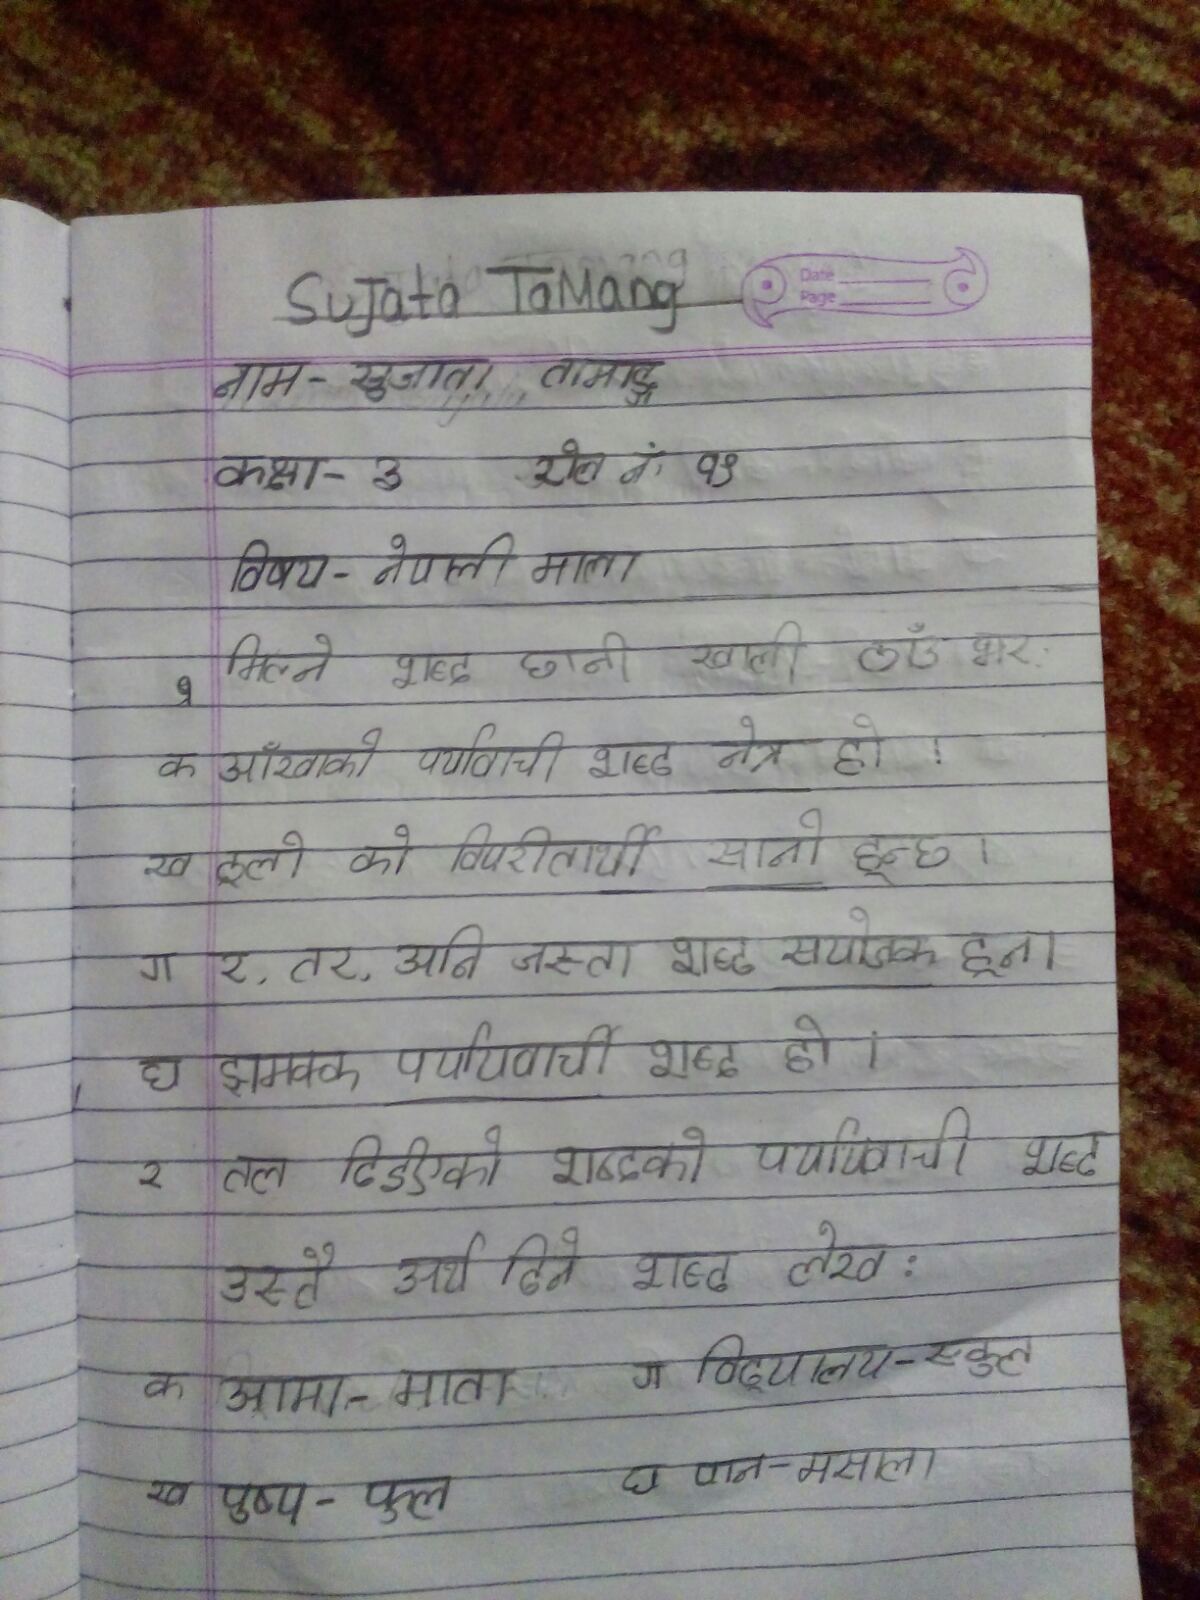 Sujata TaMang
Date
Page
नाम - सुजाता तामाङ्ग
कक्षा - ३ रोल नं. १९
विषय - नेपाली माला
१ मिल्ने शब्द छानी खाली ठाँउ भर:
क आँखाको पर्यावाची शब्द नेत्र हो ।
ख ठूलो को विपरीतार्थी सानो हून्छ ।
ग र, तर, अनि जस्ता शब्द सयोजक हून ।
घ झमक्क पर्यायवाची शब्द हो ।
२ तल दिईएको शब्दको पर्यायवाची शब्द
उस्तै अर्थ दिने शब्द लेख :
क आमा - माता ग विद्यालय - स्कुल
ख पुष्प - फुल घ पान - मसाला